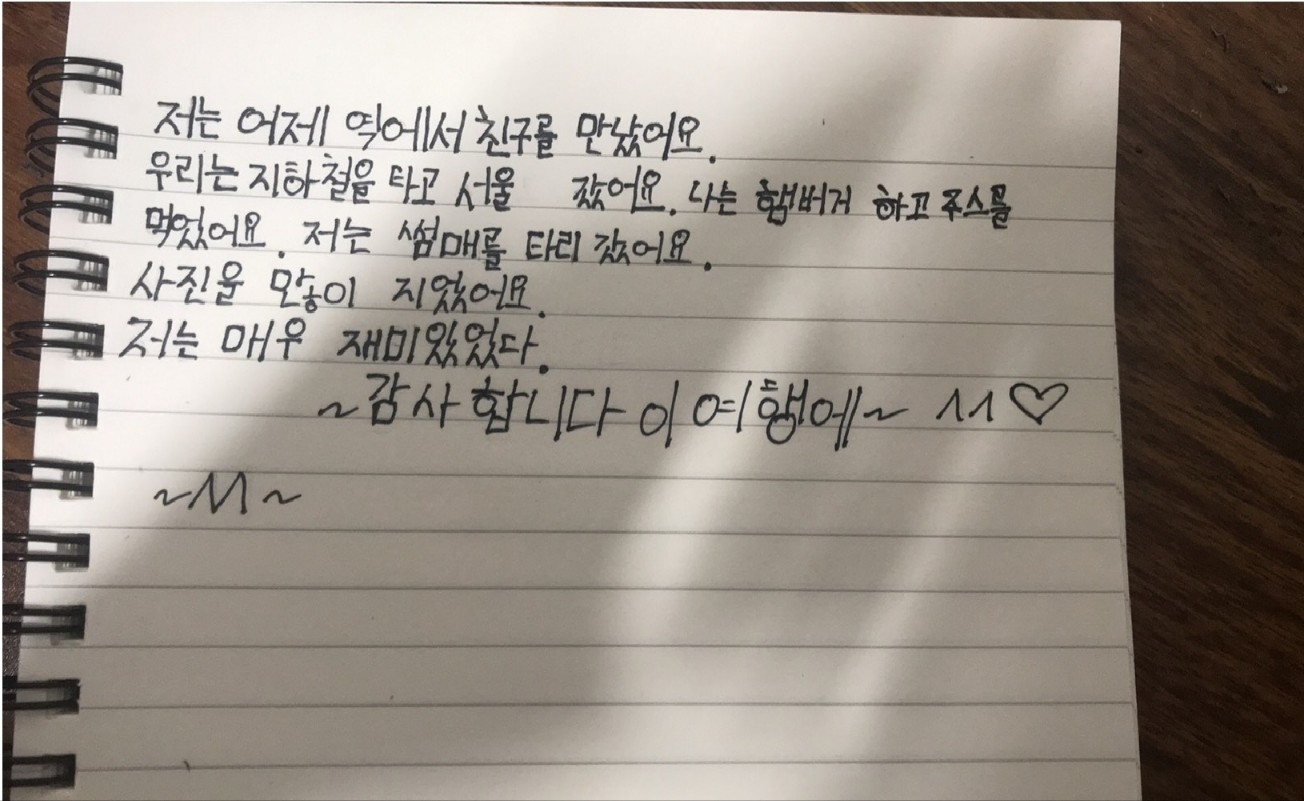 저는 어제 역에서 친구를 만났어요.
우리는 지하철을 타고 서울 갔어요. 나는 햄버거 하고 주스를
먹었어요. 저는 썸매를 타리 갔어요.
사진을 많이 지었어요.
저는 매우 재미있었다.
~감사합니다 이 여행에~ ^^♡
~^^~